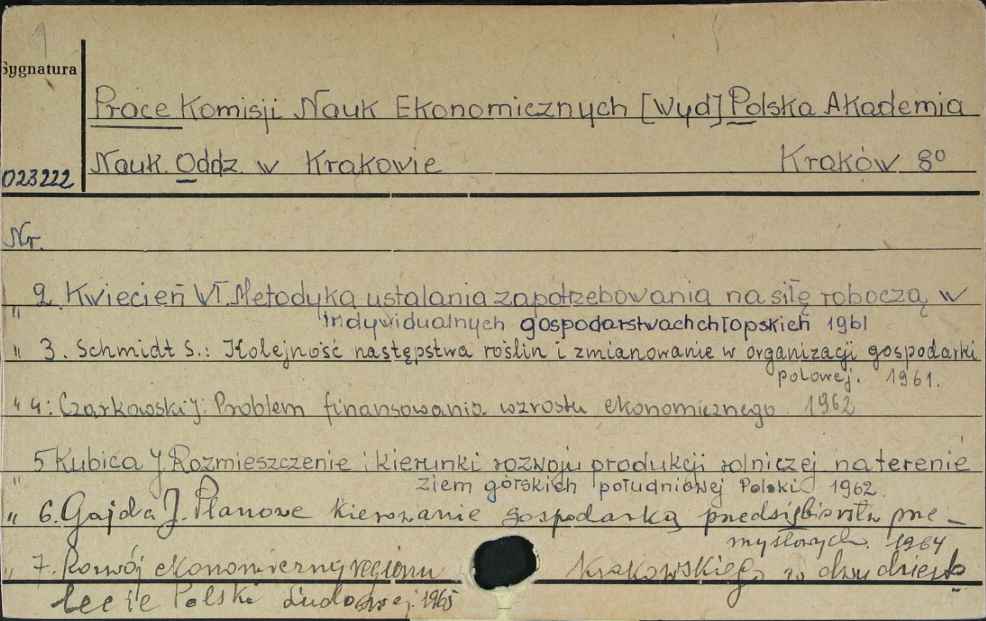 Sygnatura
Prace Komisji Nauk Ekonomicznych [Wyd] Polska Akademia
Nauk Oddz. w Krakowie Kraków 8°
023222
Nr.
" 2. Kwiecień Wł. Metodyka ustalania zapotrzebowania na siłę roboczą w
indywidualnych gospodarstwach chłopskich 1961
" 3. Schmidt S.: Kolejność następstwa roślin i zmianowanie w organizacji gospodarki
polowej. 1961.
" 4: Czarkowski J: Problem finansowania wzrostu ekonomicznego 1962
" 5 Kubica J Rozmieszczenie i kierunki rozwoju produkcji rolniczej na terenie
ziem górskich południowej Polski 1962.
" 6. Gajda J. Planowe kierowanie gospodarką przedsiębiorstw prze-
mysłowych. 1964
" 7. Rozwój ekonomiczny regionu Krakowskiego w dwudziesto
lecie Polski Ludowej. 1965